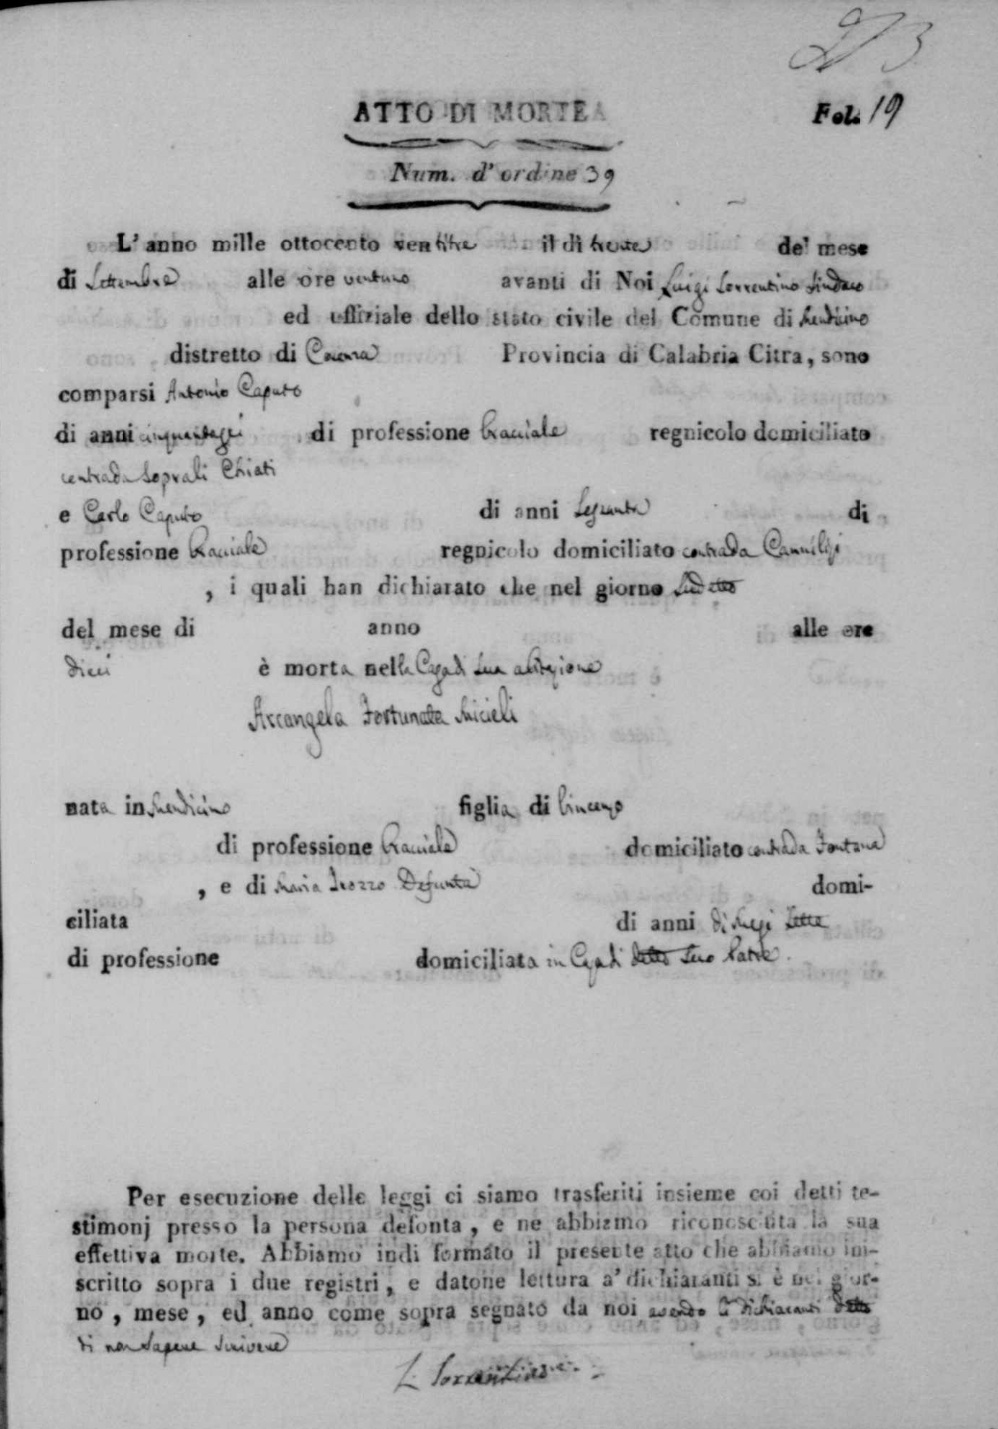 ATTO DI MORTE
Fol. 19
Num. d'ordine 39
L'anno mille ottocento ventitre il di trenta del mese
di Settembre alle ore ventuno avanti di Noi Luigi Sorrentino Sindaco
ed uffiziale dello stato civile del Comune di Mendicino
distretto di Cosenza Provincia di Calabria Citra, sono
comparsi Antonio Caputo
di anni cinquantasei di professione Bracciale regnicolo domiciliato
contrada Soprali Chiati
e Carlo Caputo di anni Sessanta di
professione Bracciale regnicolo domiciliato contrada
, i quali han dichiarato che nel giorno Sudetto
del mese di anno alle ore
dieci è morta nella Casa di Sua abitazione
Arcangela Fortunata Micieli
nata in Mendicino figlia di Vincenzo
di professione Bracciale domiciliato contrada Fontana
, e di Maria Defunta domi-
ciliata di anni di Mesi Sette
di professione domiciliata in Casa di detto Suo Patre
Per esecuzione delle leggi ci siamo trasferiti insieme coi detti te-
stimonj presso la persona defonta, e ne abbiamo riconosciuta la sua
effettiva morte. Abbiamo indi formato il presente atto che abbiamo ini-
scritto sopra i due registri, e datone lettura a' dichiaranti si è nel gior-
no, mese, ed anno come sopra segnato da noi avendo i dichiaranti detto
di non Sapere Scrivere
L. Sorrentino